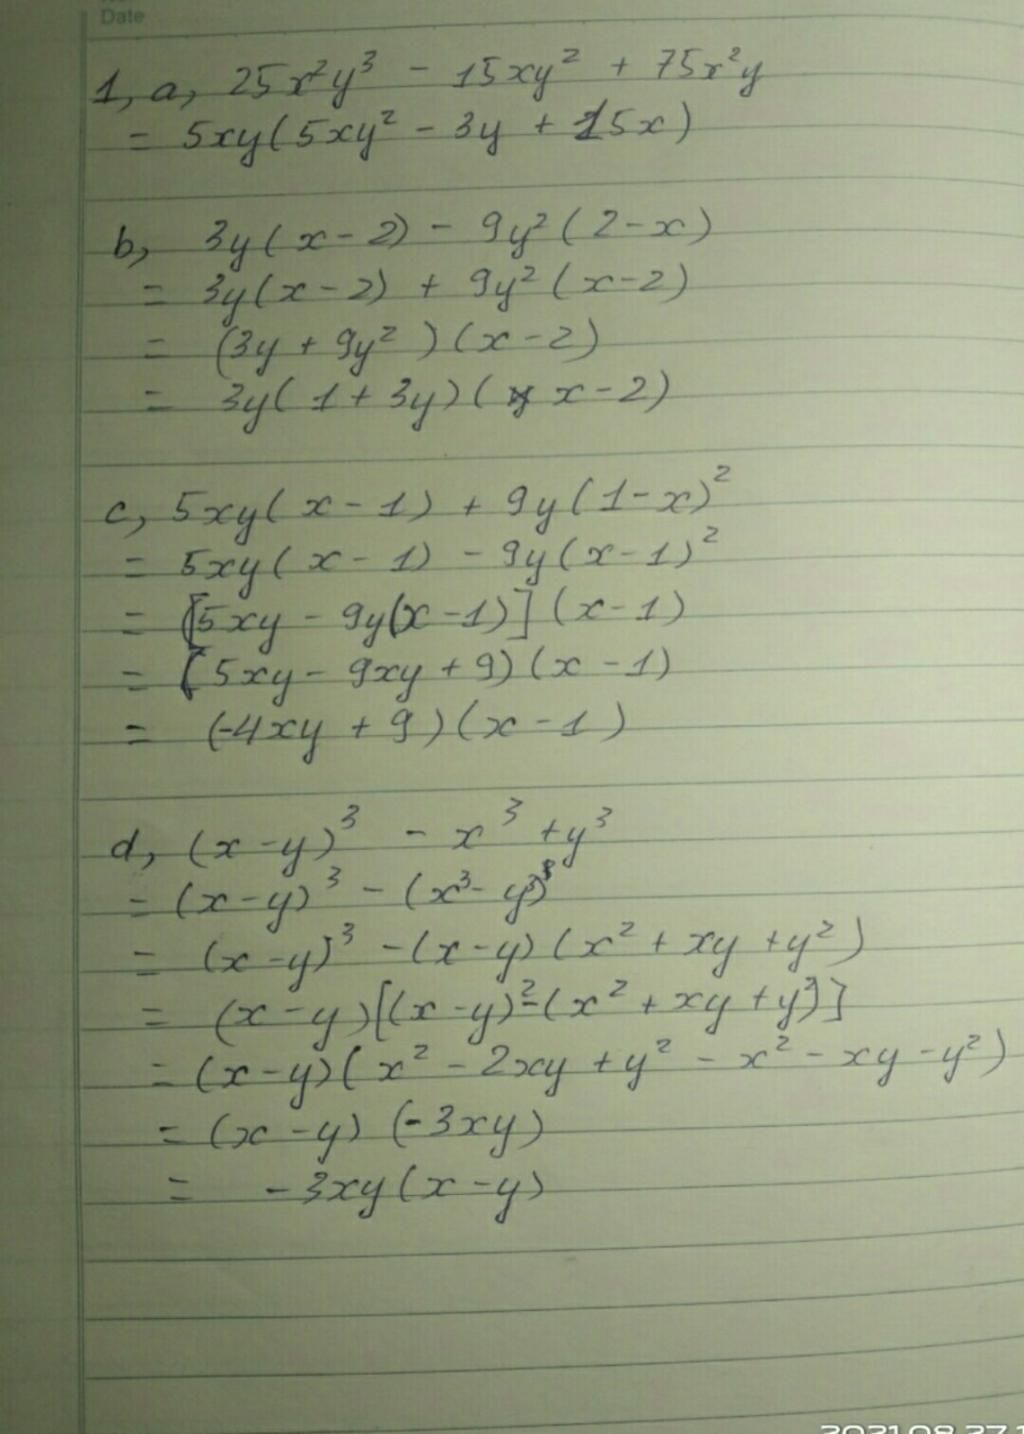 Date
1, a, 25x²y³ - 15xy² + 75x²y
= 5xy(5xy² - 3y + 15x)
b, 3y(x-2) - 9y²(2-x)
= 3y(x-2) + 9y²(x-2)
= (3y + 9y²)(x-2)
= 3y(1+3y)(x-2)
c, 5xy(x-1) + 9y(1-x)²
= 5xy(x-1) - 9y(x-1)²
= [5xy - 9y(x-1)](x-1)
= (5xy - 9xy + 9)(x-1)
= (-4xy + 9)(x-1)
d, (x-y)³ - x³ + y³
= (x-y)³ - (x³ - y³)
= (x-y)³ - (x-y)(x² + xy + y²)
= (x-y)[(x-y)² - (x² + xy + y²)]
= (x-y)(x² - 2xy + y² - x² - xy - y²)
= (x-y)(-3xy)
= -3xy(x-y)